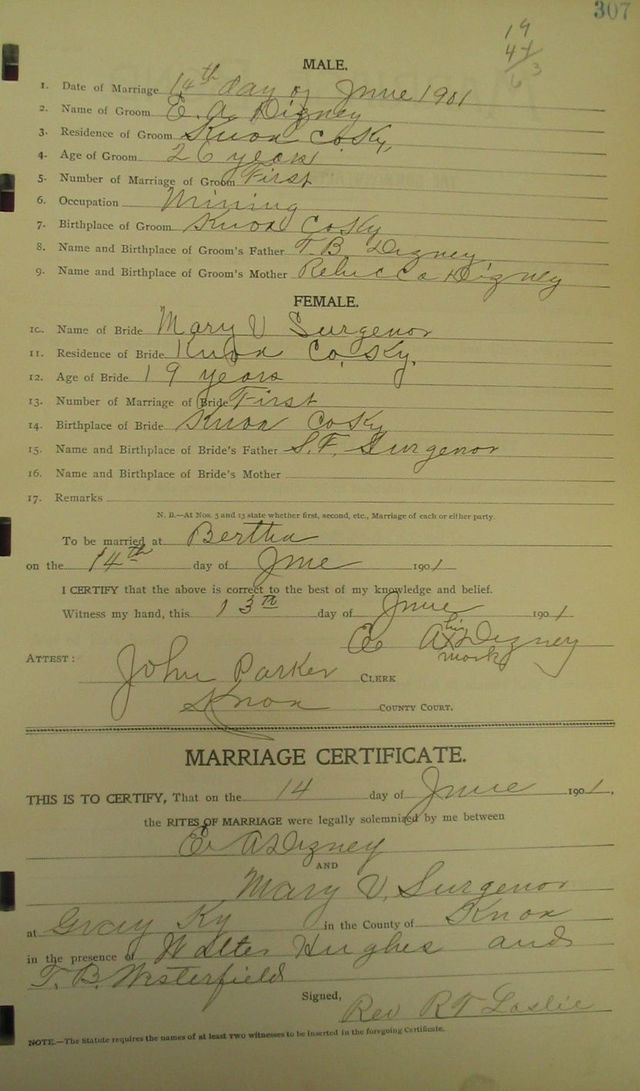 307
19
MALE.
1. Date of Marriage 14th day of June 1901
2. Name of Groom E. A Dizney
3. Residence of Groom Knox Co. Ky,
4. Age of Groom 26 years
5. Number of Marriage of Groom First
6. Occupation Mining
7. Birthplace of Groom Knox Co Ky
8. Name and Birthplace of Groom's Father T. B Dizney
9. Name and Birthplace of Groom's Mother Rebecca Dizney
FEMALE.
10. Name of Bride Mary V Surgenor
11. Residence of Bride Knox Co, Ky,
12. Age of Bride 19 years
13. Number of Marriage of Bride First
14. Birthplace of Bride Knox Co Ky
15. Name and Birthplace of Bride's Father S. F. Surgenor
16. Name and Birthplace of Bride's Mother
17. Remarks
N. B.—At Nos. 5 and 13 state whether first, second, etc., Marriage of each or either party.
To be married at Bertha
on the 14th day of June 1901
I CERTIFY that the above is correct to the best of my knowledge and belief.
Witness my hand, this 13th day of June 1901
E A his x mark Dizney
ATTEST: John Parker CLERK
Knox COUNTY COURT.
MARRIAGE CERTIFICATE.
THIS IS TO CERTIFY, That on the 14 day of June 1901.
the RITES OF MARRIAGE were legally solemnized by me between
E. A Dizney
AND
Mary V. Surgenor
at Gray Ky in the County of Knox
in the presence of Walter Hughes and
T. B. Westerfield
Signed, Rev R T Laslie
NOTE.—The Statute requires the names of at least two witnesses to be inserted in the foregoing Certificate.